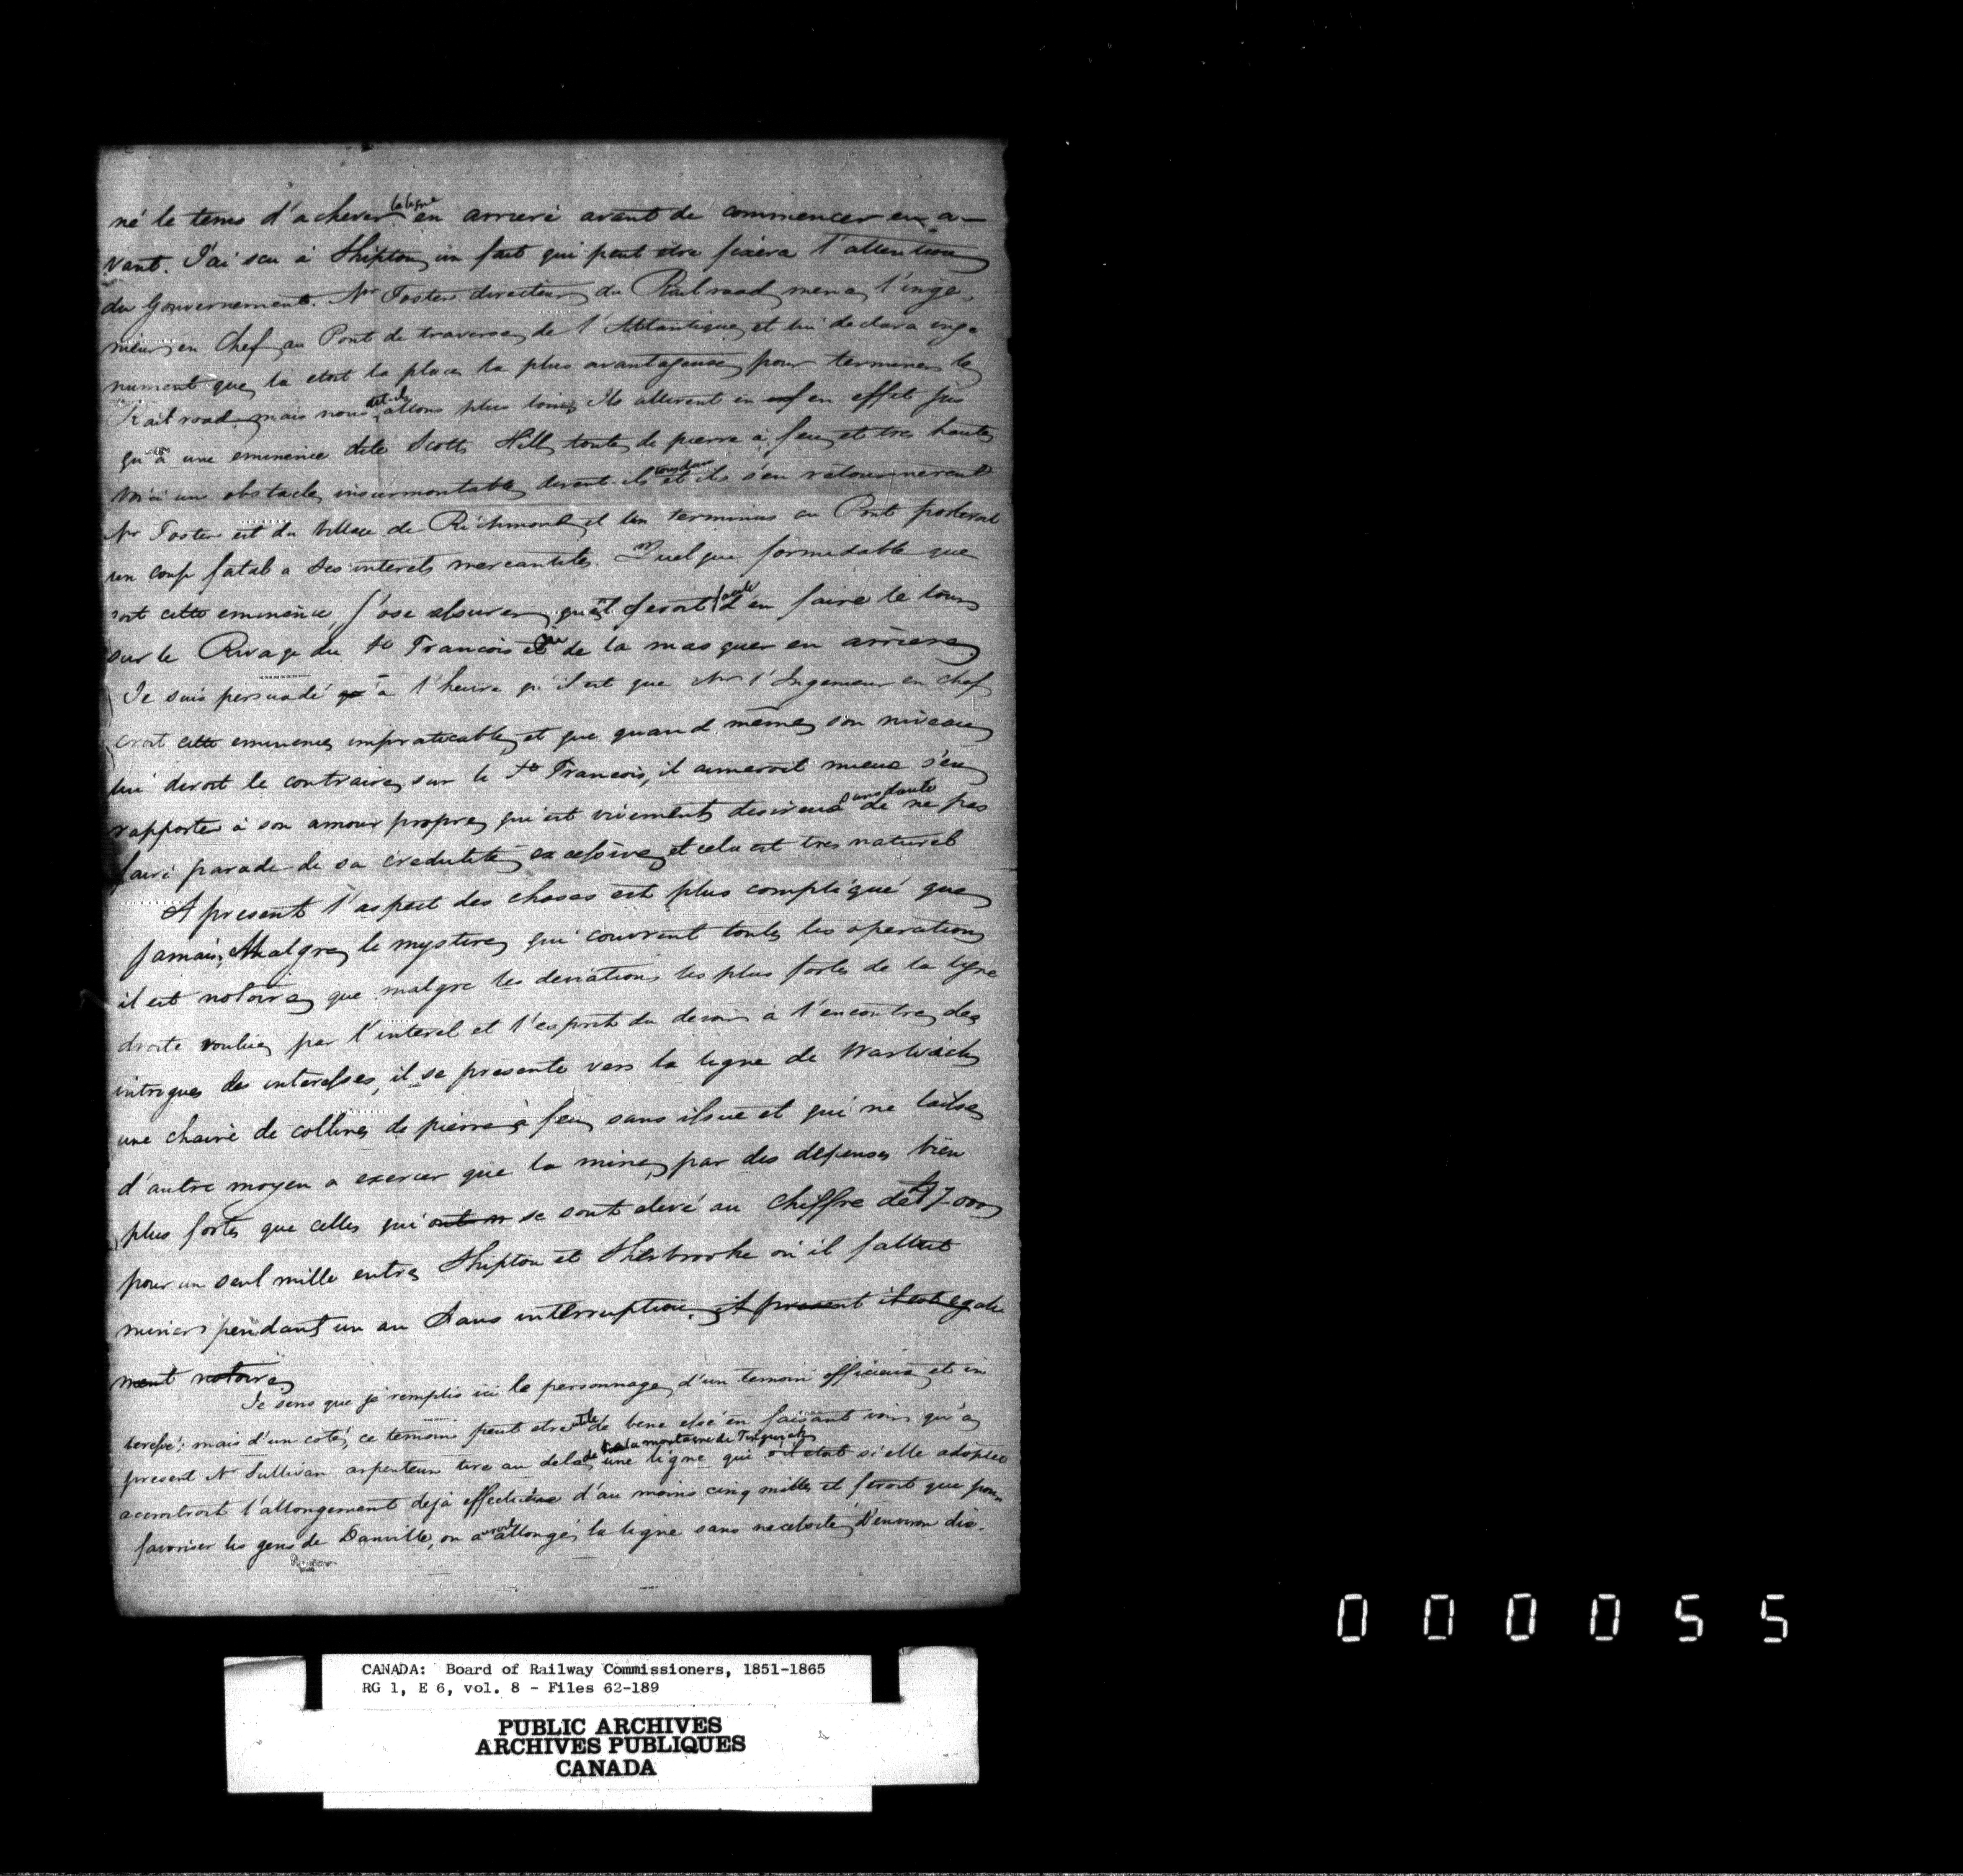 né le tems d'achever la ligne en arriere avant de commencer en a-
vant. J'ai scu à Shipton un fait qui peut etre fixera l'attention
du Gouvernement. Mr Foster directeur du Rail road mena l'inge-
nieur en Chef au Pont de traverse de l'Atlantique et lui declara inge
nument que la etoit la place la plus avantageuse pour terminer le
Rail road mais nous dit il allons plus loin Ils allerent en en effet jus
qu'à une eminence dite Scotts Hill toute de pierre à feu et tres haute
Voici un obstacle insurmontable dirent ils et ils s'en retournerent
Mr Foster est du Village de Richmond et un terminus au Pont porteroit
un coup fatal a ses interets mercantiles. Quelque formidable que
soit cette eminence, j'ose assurer qu'il seroit facile d'en faire le tour
sur le Rivage du St Francois ou de la masquer en arriere
Je suis persuadé à l'heure qu'il est que Mr l'Ingenieur en chef
croit cette eminence impraticable et que quand même son niveau
lui diroit le contraire sur le St Francois, il aimeroit mieux s'en
rapporter à son amour propre qui est vivement desireux sans doute de ne pas
faire parade de sa credulité excessive et cela est tres naturel
A present l'aspect des choses est plus compliqué que
jamais, Malgre le mystere qui couvrent toutes les operations
il est notoire que malgre les deviations les plus fortes de la ligne
droite voulue par l'interet et l'esprit du devoir à l'encontre des
intrigues des interesses, il se presente vers la ligne de Warwick
une chaine de collines de pierre à feu sans issue et qui ne laisse
d'autre moyen a exercer que la mine par des depenses bien
plus fortes que celles qui se sont elevé au chiffre de £17000
pour un seul mille entre Shipton et Sherbrooke où il fallut
miner pendant un an sans interruption. A present il est egale
ment notoire
Je sens que je remplis ici le personnage d'un temoin officieux et in
teressé; mais d'un coté, ce temoin peut etre utile de bene esse en faisant voir qu'a
present Mr Sullivan arpenteur tire au dela de la montagne de Tingwick une ligne qui si elle adoptée
accroitroit l'allongement deja effectué d'au moins cinq milles et feroit que pour
favoriser les gens de Danville, on auroit allongé la ligne sans necessité d'environ dix
CANADA: Board of Railway Commissioners, 1851-1865
RG 1, E 6, vol. 8 - Files 62-189
PUBLIC ARCHIVES
ARCHIVES PUBLIQUES
CANADA
000055